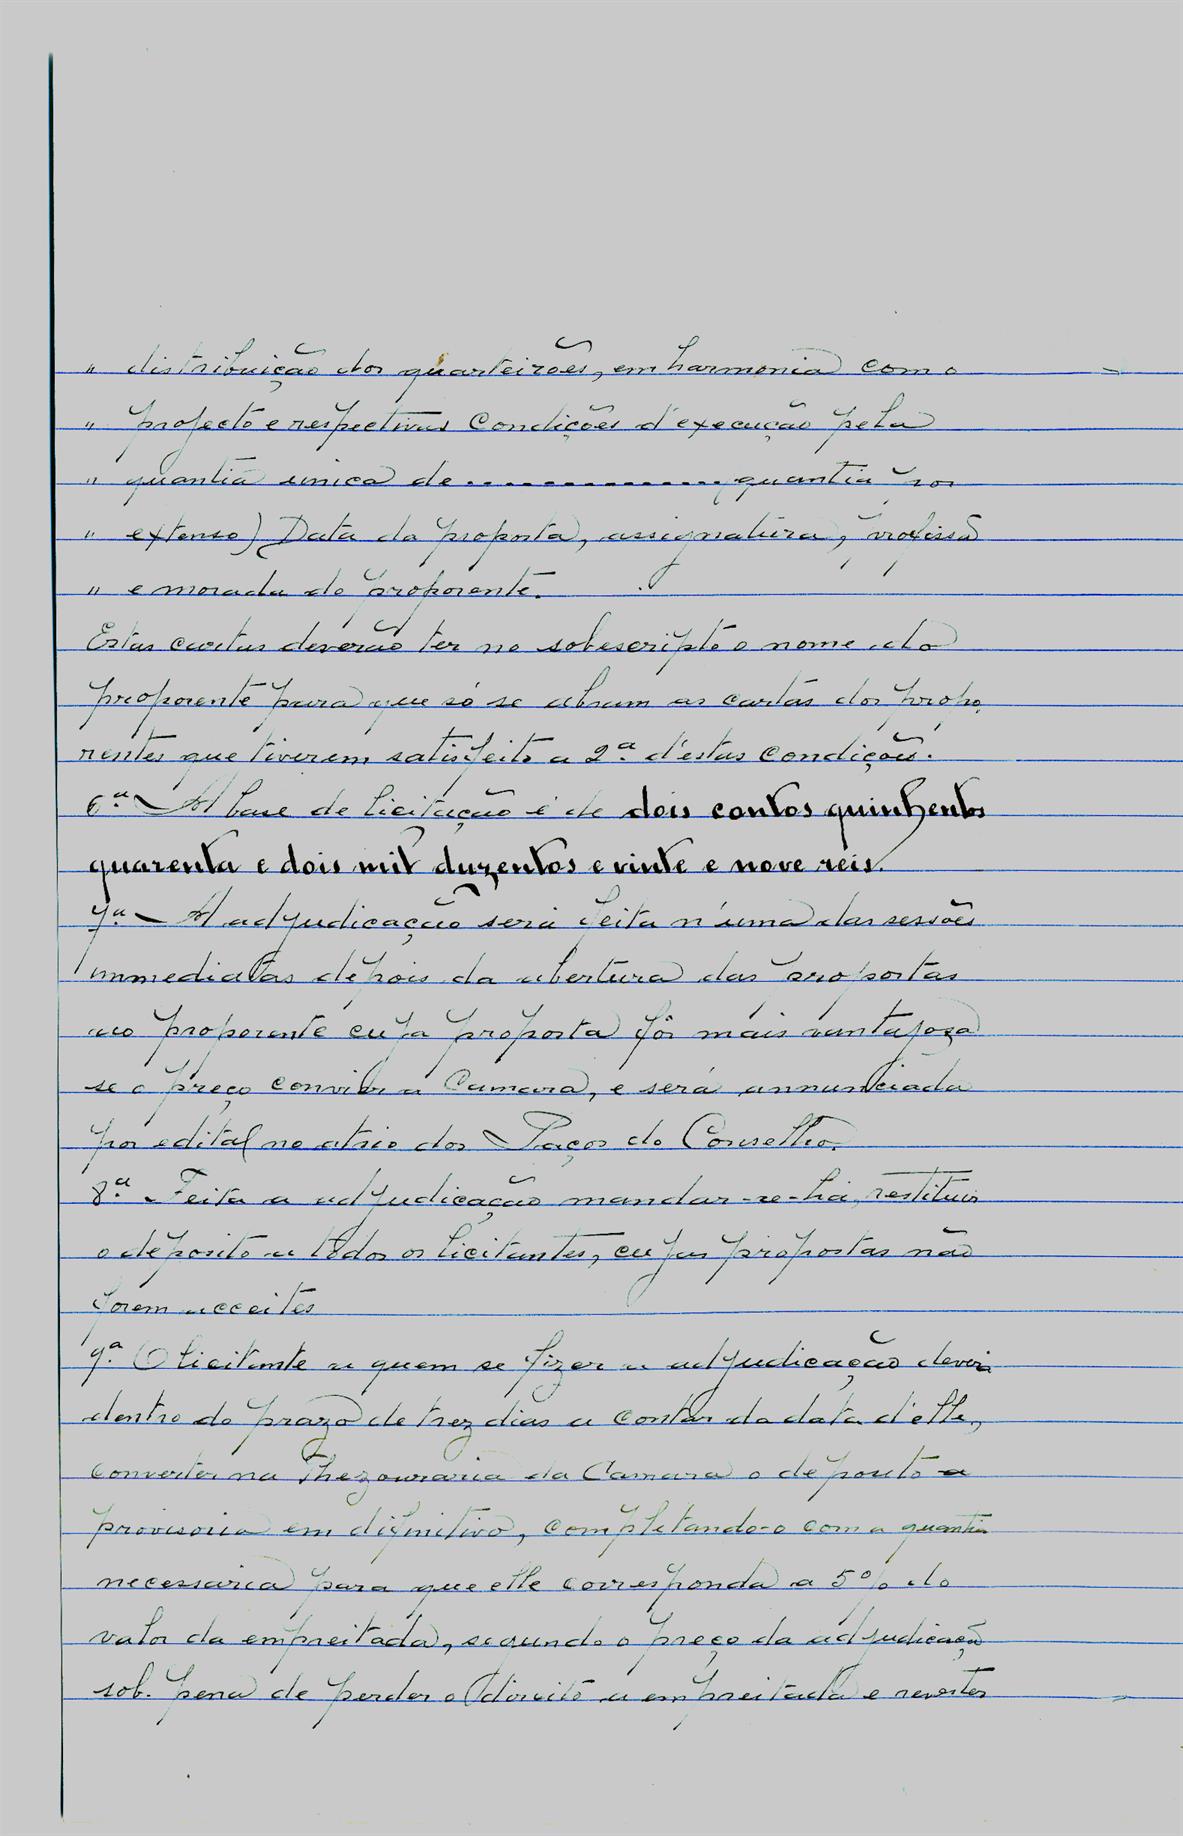 " distribuição dos quarteirões, em harmonia com o
" projecto e respectivas Condições d'execução pela
" quantia unica de ................ quantia por
" extenso) Data da proposta, assignatura, profissão
" e morada do proponente.
Estas cartas deverão ter no sobescripto o nome do
proponente para que só se abram as cartas dos propo.
nentes que tiverem satisfeito a 2.ª d'estas condições.
6.ª - A base de licitação é de dois contos quinhentos
quarenta e dois mil duzentos e vinte e nove reis.
7.ª - A adjudicação será feita n'uma das sessões
immediatas depois da abertura das propostas
ao proponente cuja proposta fôr mais vantajoza
se o preço convier a Camara, e será annunciada
por edital no atrio dos Paços do Conselho.
8.ª - Feita a adjudicação mandar-se-há, restituir
o deposito a todos os licitantes, cujas propostas não
forem acceites
9.ª O licitante a quem se fizer a adjudicação deverá
dentro do prazo de trez dias a contar da data d'elle,
converter na Thezouraria da Camara o deposito
provisorio em difinitivo, completando-o com a quantia
necessaria para que elle corresponda a 5% do
valor da empreitada, segundo o preço da adjudicação
sob. pena de perder o direito a empreitada e reverter